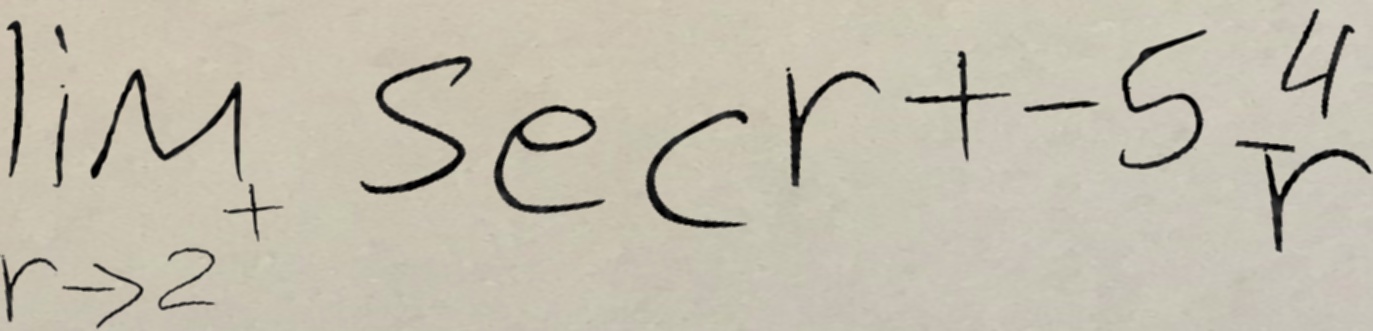 \lim_{r \to 2^+} \sec r + -5 \frac{4}{r}